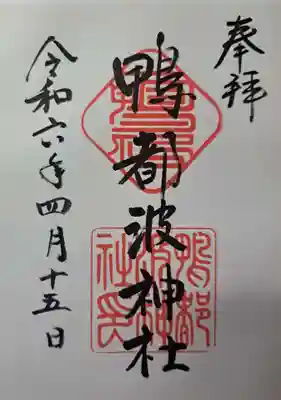 奉拝
鴨都波神社
令和六年四月十五日